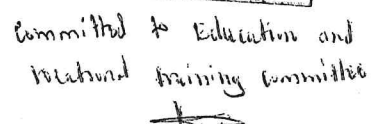 Committed to Education and
vocational training committee